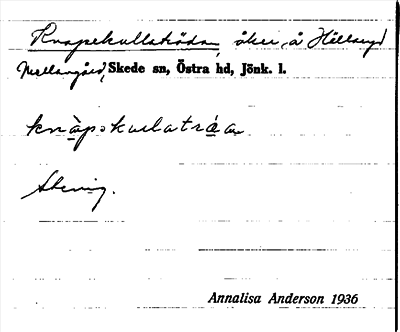 Knapekullaträdan, åker, å Hållanyd
Mellangård, Skede sn, Östra hd, Jönk. l.
knàpekullatráa
Stenig.
Annalisa Anderson 1936